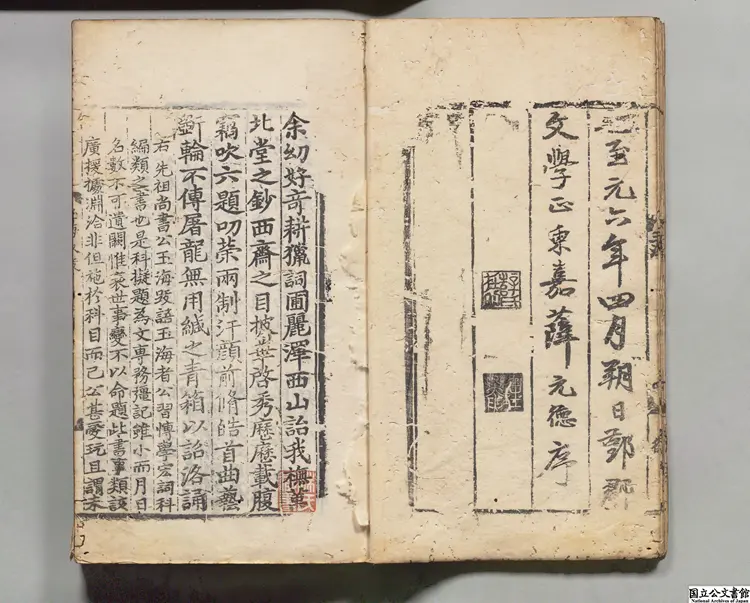 至元六年四月朔日鄞郡
文學正東嘉薛元德序
余幼好奇耕獵詞圃麗澤西山詒我
北堂之鈔西齋之目披華啓秀歷歷載腹
竊吹六題叨榮兩制汗顏前脩皓首曲藝
斲輪不傳屠龍無用緘之青箱以詒洛誦
右先祖尚書公玉海跋語玉海者公習博學宏詞科
編類之書也是科擬題為文專務彊記雖小而月日
名數不可遺闕惟衰世事變不以命題此書事類該
廣援據淵洽非但施於科目而已公甚愛玩且謂未
国立公文書館
National Archives of Japan